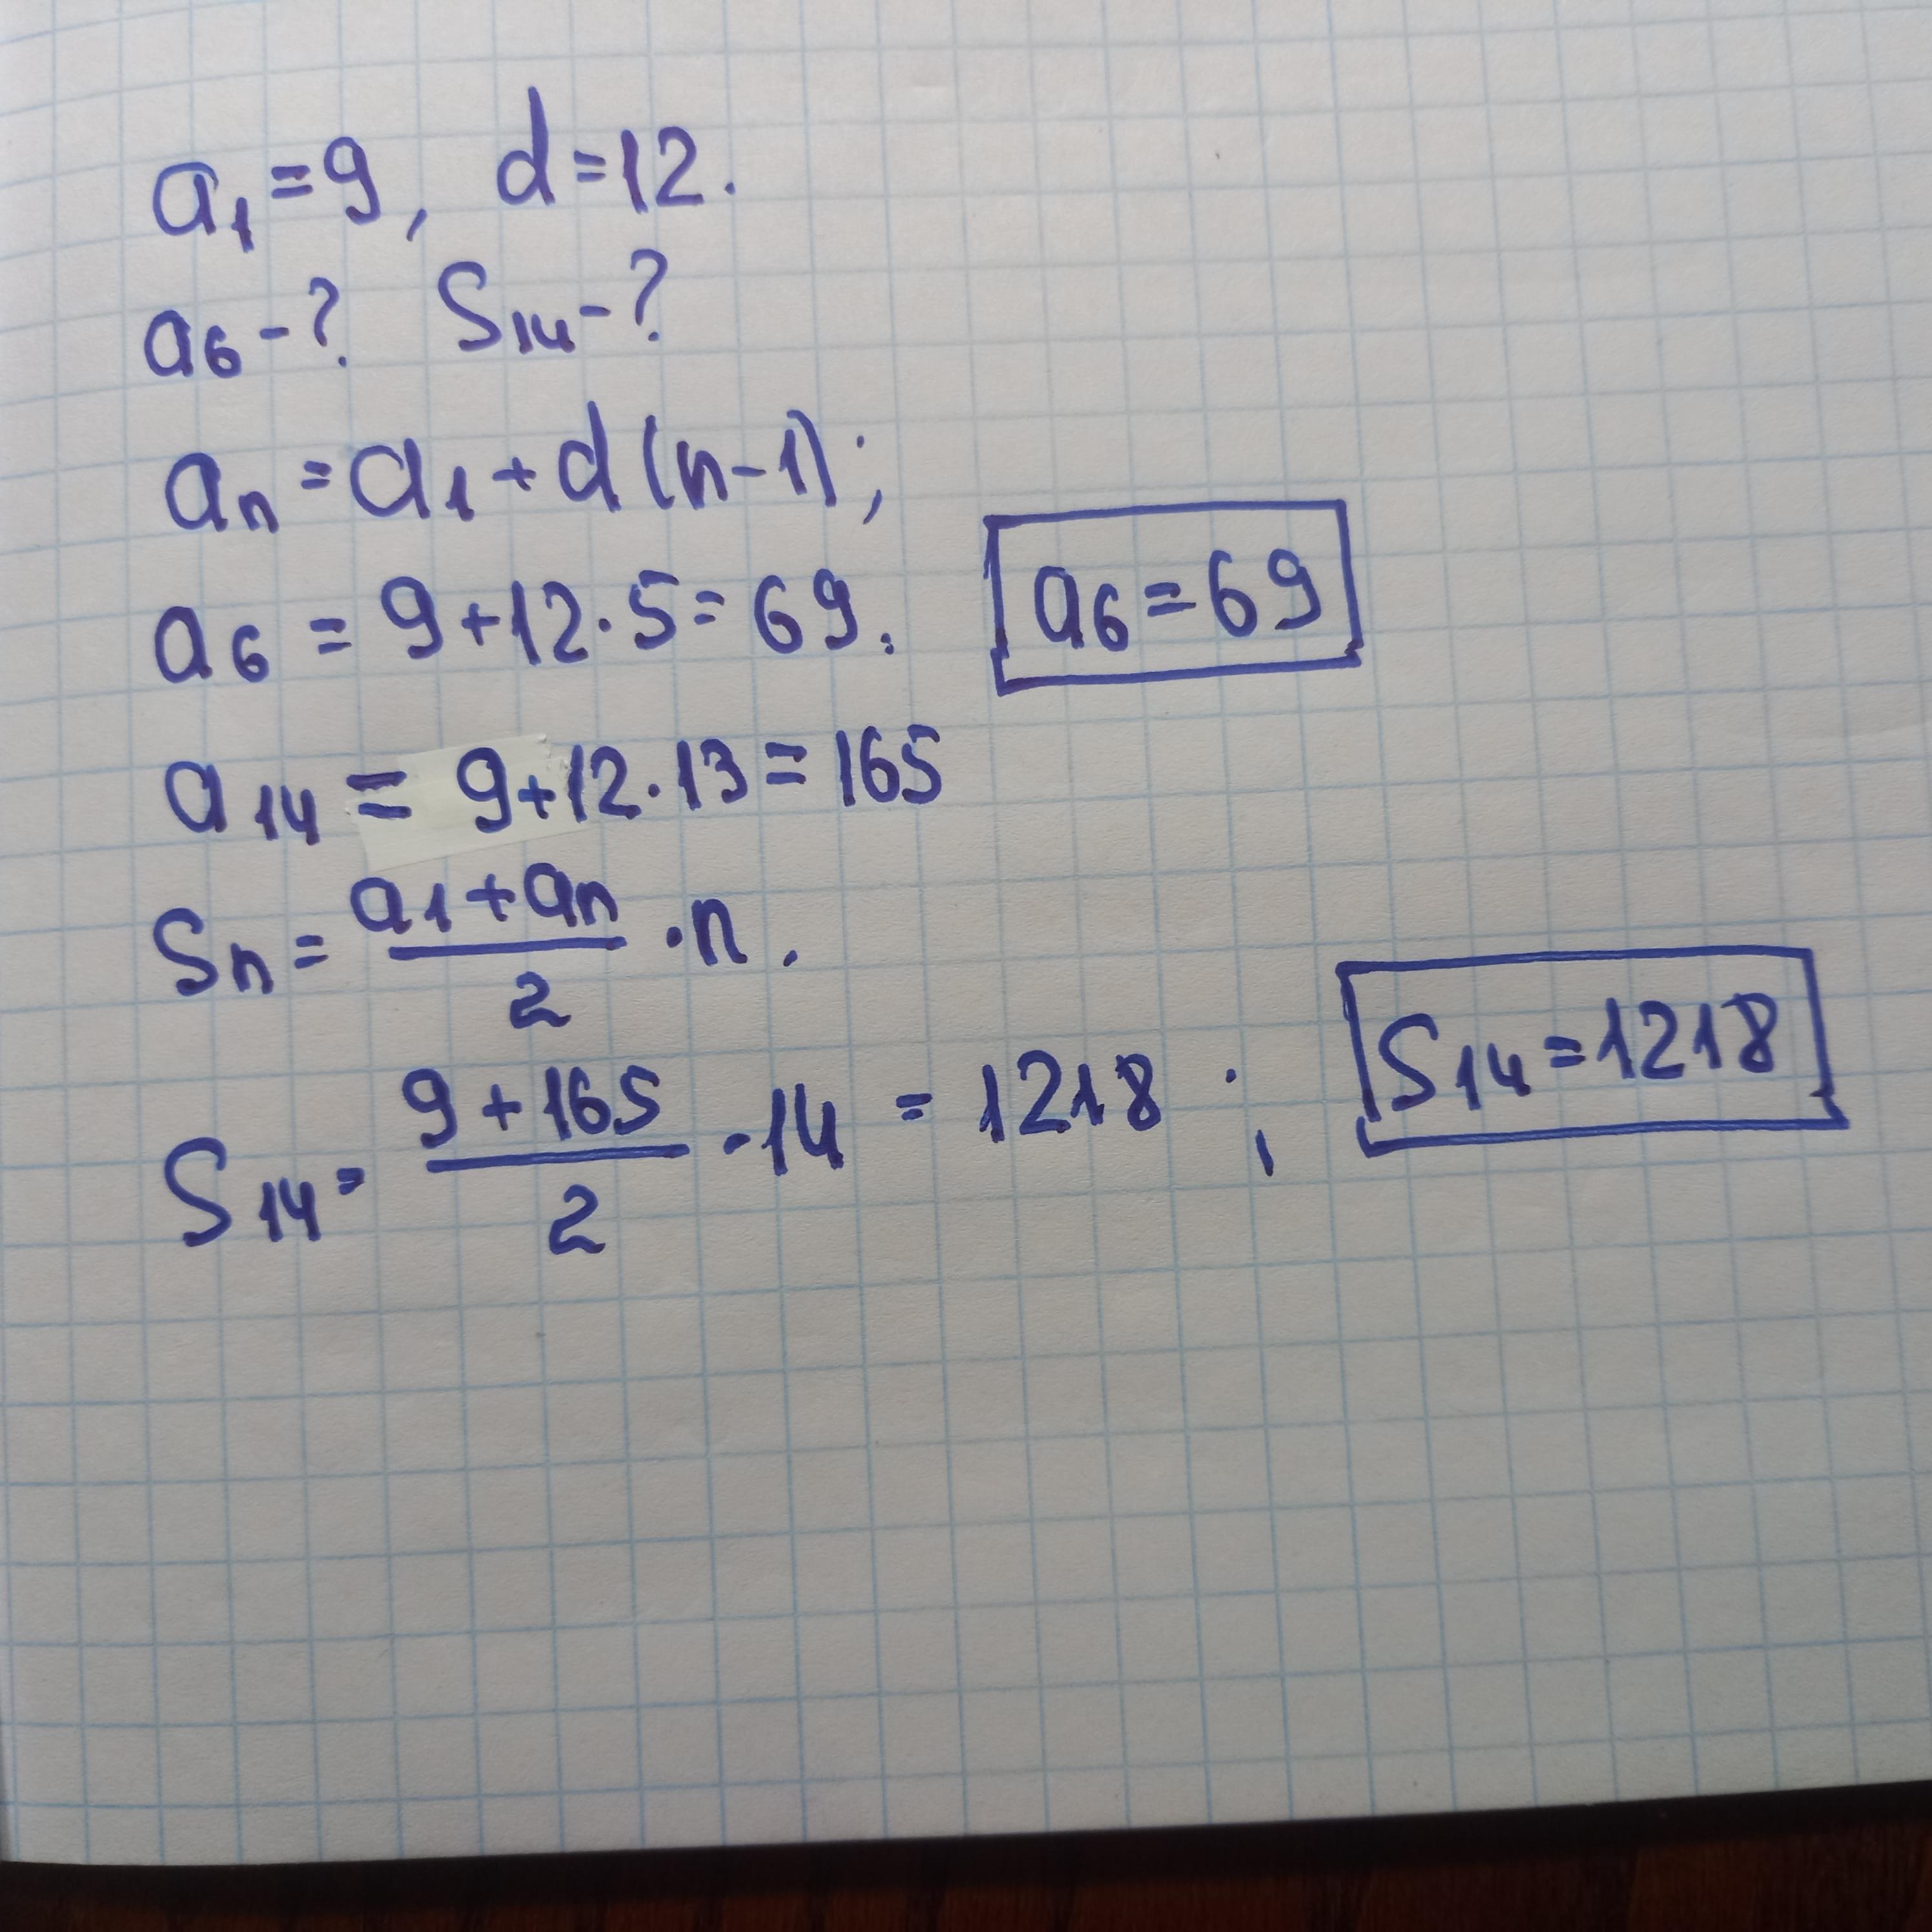 a₁=9, d=12.
a₆-? S₁₄-?
aₙ=a₁+d(n-1);
a₆=9+12·5=69. a₆=69
a₁₄=9+12·13=165
Sₙ=(a₁+aₙ)/2·n.
S₁₄=(9+165)/2·14=1218; S₁₄=1218